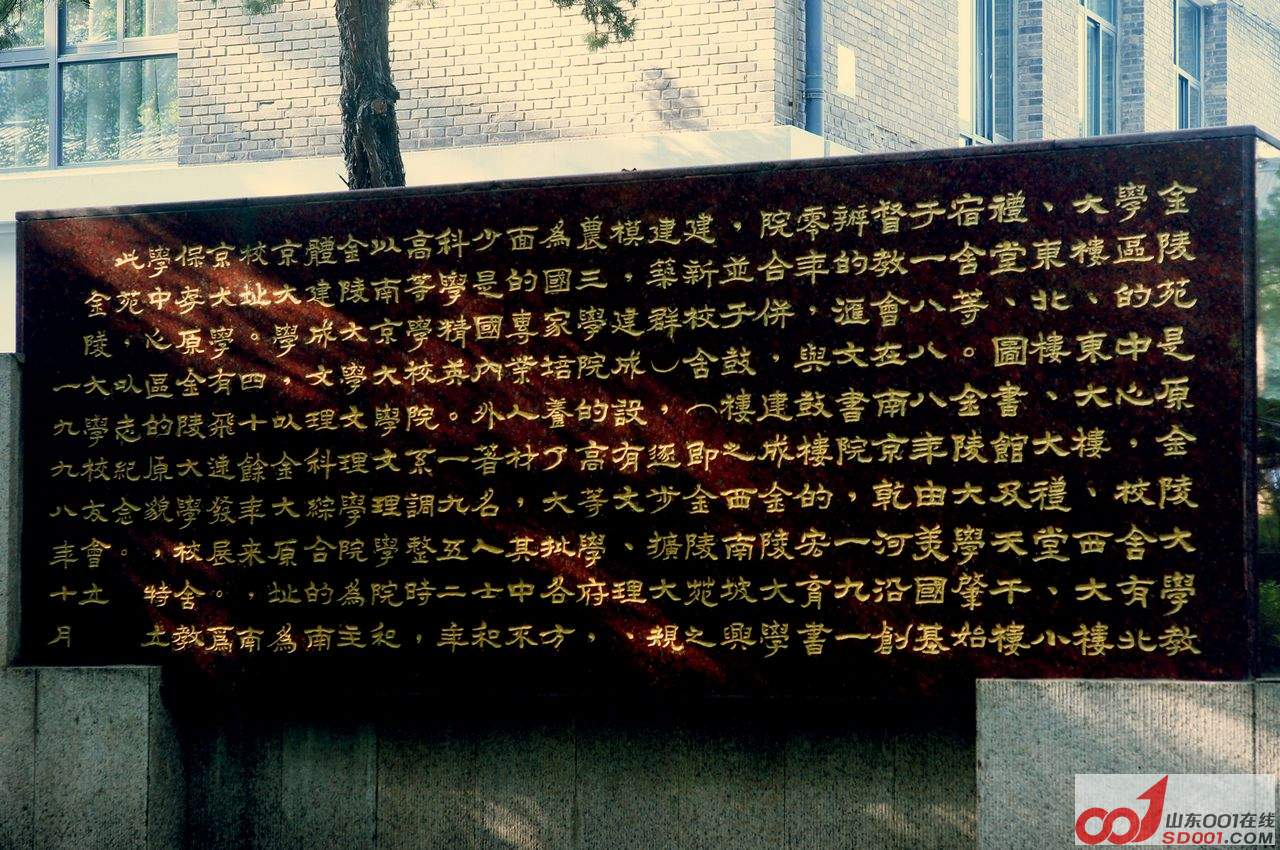 金陵苑是原金陵大學教
學區的中心，校舍有北
大樓、東大樓、西大樓
、東北樓、大禮堂、小
禮堂、圖書館及天干樓
宿舍等。金陵大學肇始
于一八八八年由美國基
督教會在南京乾河沿創
辦的匯文書院，一九一
零年，與鼓樓的宏育書
院合併，建成金陵大學
，並于鼓樓之西南坡興
建新校舍（即金陵苑之
建築群），逐步擴大視
模，建成設有文、理、
農三學院的高等學府，
為國家培養了大批各方
面的專業人材，其中不
少是國內外著名人士和
科學精英。一九五二年
高等學校院系調整時，
以南京大學文理學院和
金陵大學文理學院為主
體建成文理科綜合的南
京大學，以金大原址為
校址。四十餘年來，南
京大學有飛速發展。爲
保存原金陵大學校舍教
學中心區的原貌，特立
此苑，以志紀念。
金陵大學校友會立
一九九八年十月
山东001在线
SD001.COM